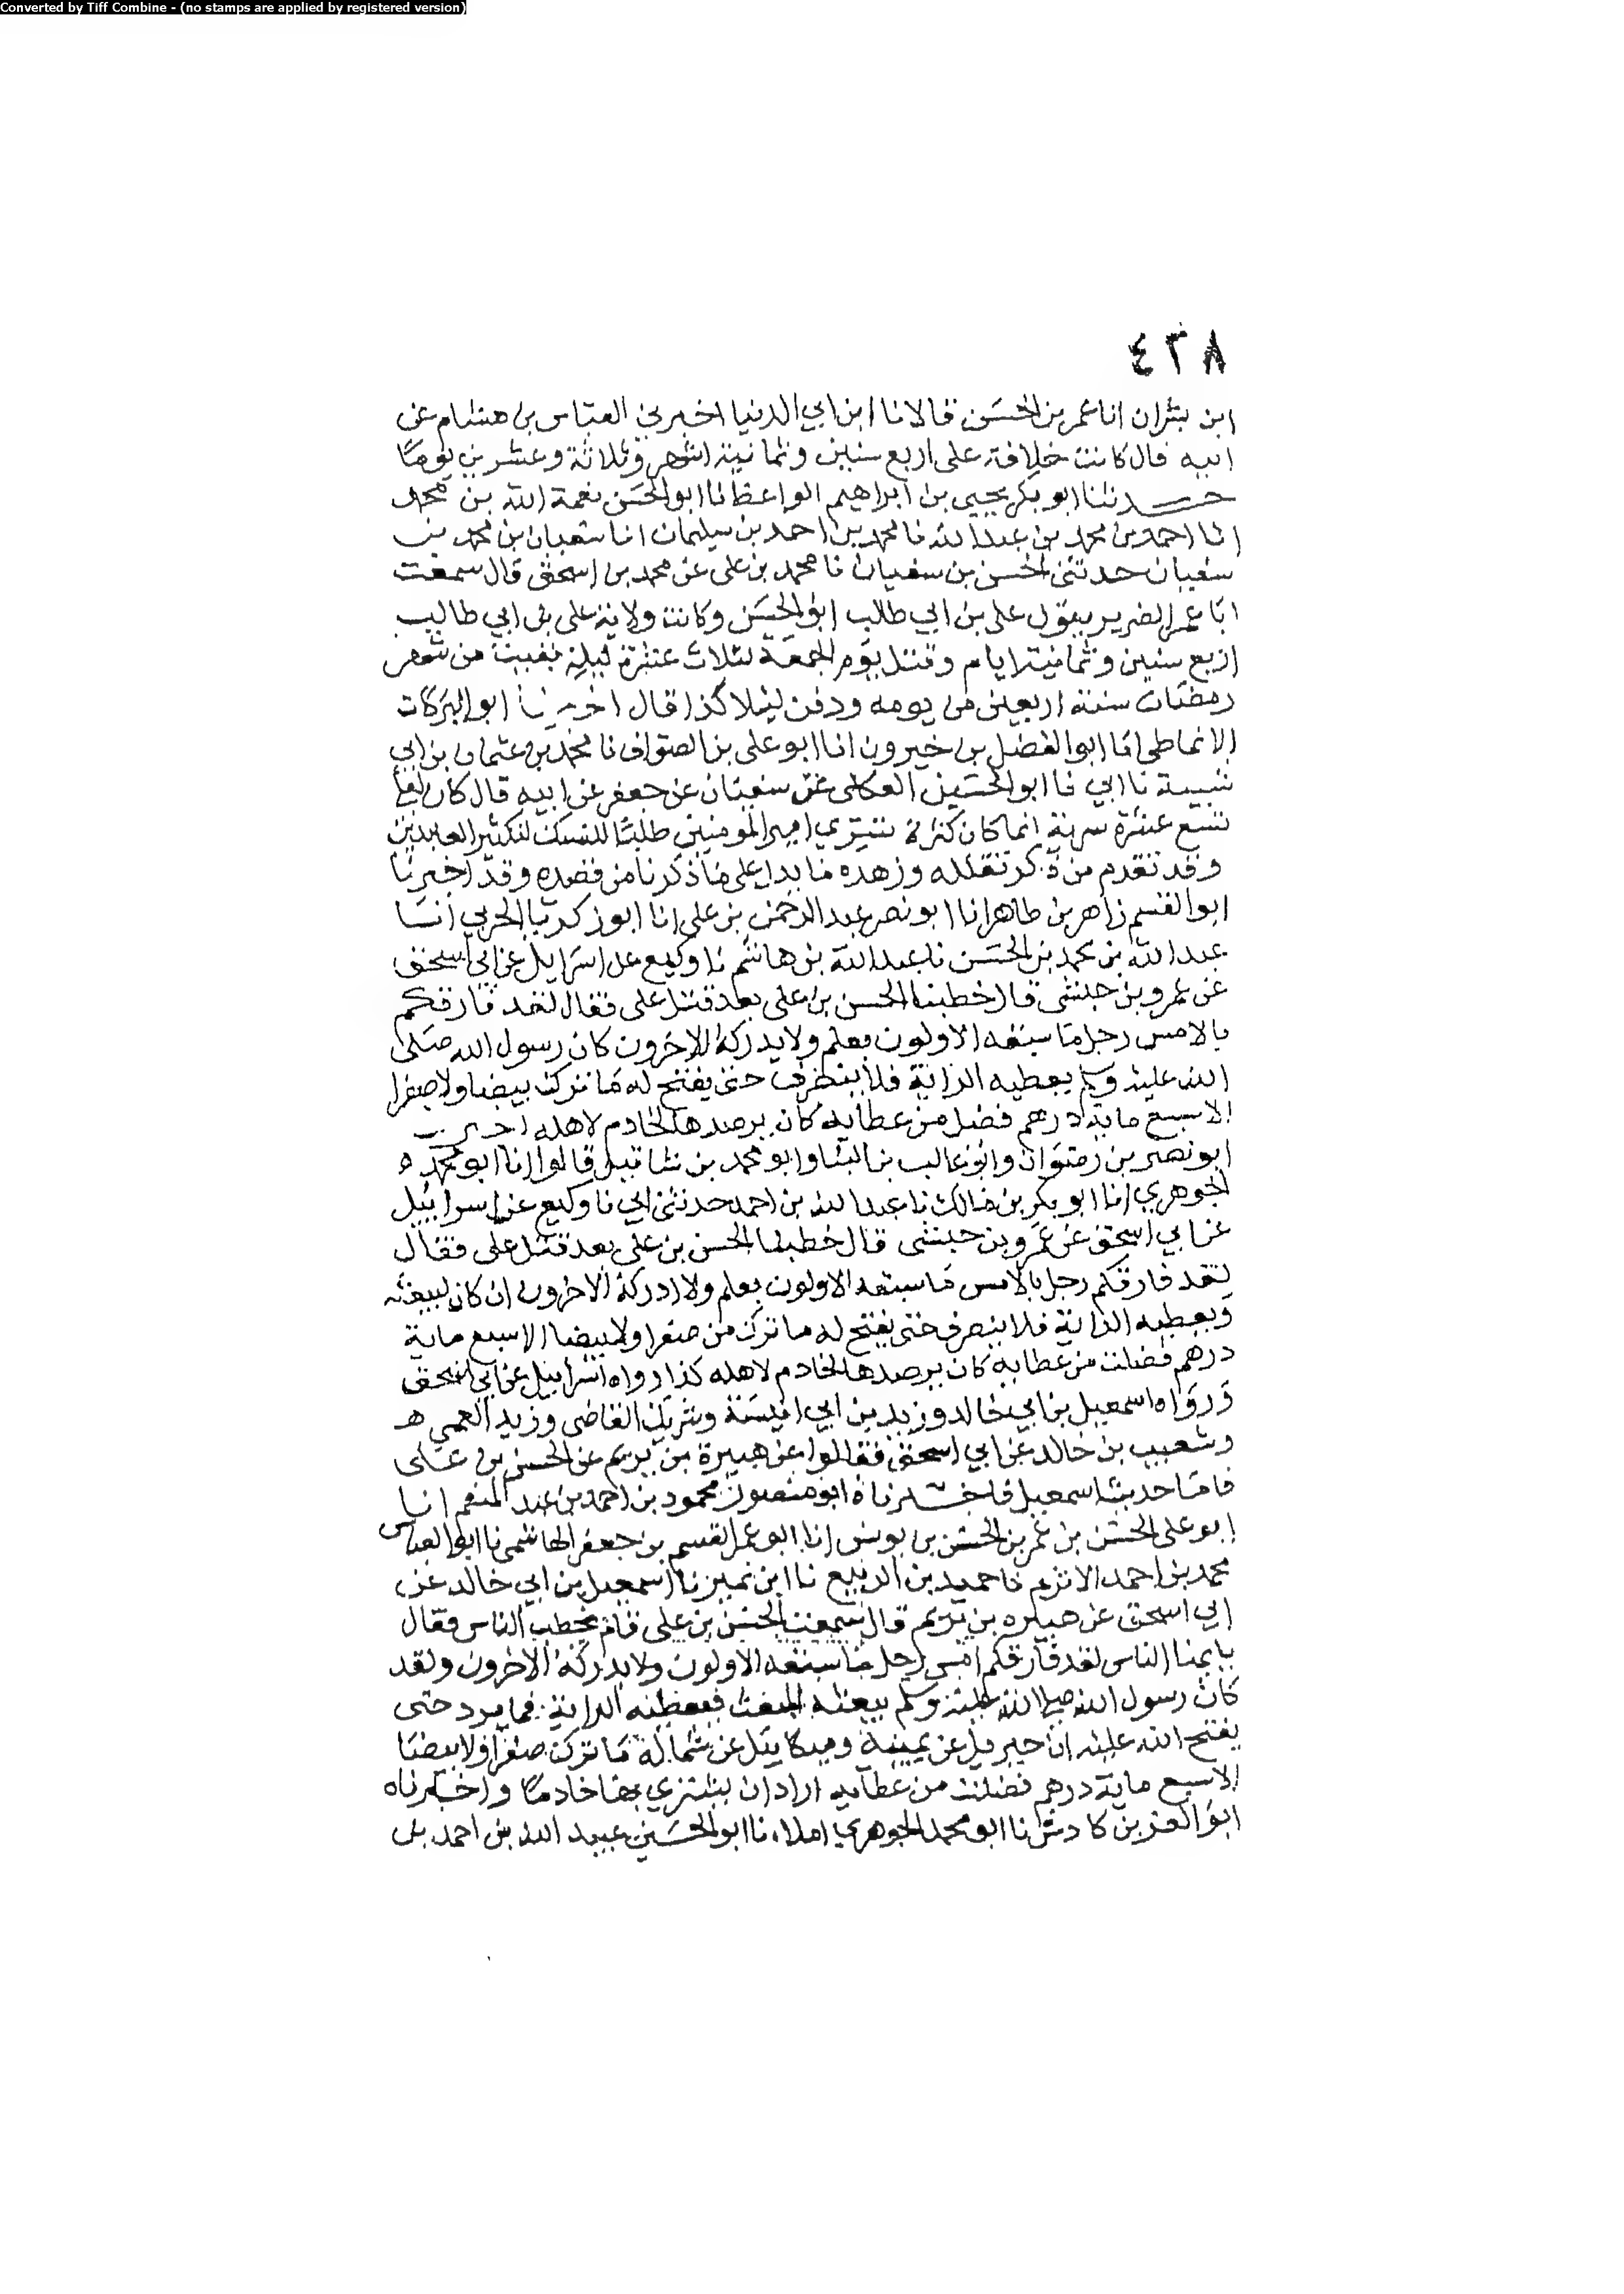 Converted by Tiff Combine - (no stamps are applied by registered version)
٤٣٨
ابن بشران انا عمر بن الحسن قالا نا ابن ابي الدنيا اخبرني العباس بن هشام عن
ابيه قال كانت خلافة علي اربع سنين وثمانية اشهر وثلاثة وعشرين يوما
حدثنا ابو بكر يحيى بن ابراهيم الواعظ انا ابو الحسن نعمة الله بن محمد
انا احمد بن محمد بن عبد الله نا محمد بن احمد بن سليمان انا سفيان بن محمد بن
سفيان حدثني الحسن بن سفيان نا محمد بن علي عن محمد بن اسحق قال سمعت
ابا عمر الضرير يقول علي بن ابي طالب ابو الحسن وكانت ولاية علي بن ابي طالب
اربع سنين وثمانية ايام وقتل يوم الجمعة لثلاث عشرة ليلة بقيت من شهر
رمضان سنة اربعين من يومه ودفن ليلا كذا قال اخبرنا ابو البركات
الانماطي انا ابو الفضل بن خيرون انا ابو علي بن الصواف نا محمد بن عثمان بن ابي
شيبة نا ابي نا ابو الحسين العكلي عن سفيان عن جعفر عن ابيه قال كان لعلي
تسع عشرة سرية انما كان كثرة تسري امير المومنين طلبا للنسك لتكثير العابدين
وقد تقدم من ذكر تقلله وزهده ما يدل على ما ذكرنا من قصده وقد اخبرنا
ابو القسم زاهر بن طاهر انا ابو نصر عبد الرحمن بن علي انا ابو زكريا الحربي انا
عبد الله بن محمد بن الحسن نا عبد الله بن هاشم نا وكيع عن اسرايل عن ابي اسحق
عن عمرو بن حبشي قال خطبنا الحسن بن علي بعد قتل علي فقال لقد فارقكم
بالامس رجل ما سبقه الاولون بعلم ولا يدركه الاخرون كان رسول الله صلى
الله عليه وسلم يعطيه الراية فلا ينصرف حتى يفتح له ما ترك بيضا ولا صفرا
الا سبع ماية درهم فضل من عطايه كان يرصدها لخادم لاهله اخبرنا
ابو نصر بن رضوان وابو غالب بن البنا وابو محمد بن شاتيل قالوا انا ابو محمد ه
الجوهري انا ابو بكر بن مالك نا عبد الله بن احمد حدثني ابي نا وكيع عن اسراييل
عن ابي اسحق عن عمرو بن حبشي قال خطبنا الحسن بن علي بعد قتل علي فقال
لقد فارقكم رجل بالامس ما سبقه الاولون بعلم ولا ادركه الاخرون ان كان ليبعثه
ويعطيه الراية فلا ينصرف حتى يفتح له ما ترك من صفرا ولا بيضا الا سبع ماية
درهم فضلت من عطايه كان يرصدها لخادم لاهله كذا رواه اسراييل عن ابي اسحق
ورواه اسمعيل بن ابي خالد وزيد بن ابي انيسة وشريك القاضي وزيد العمي هـ
وشعيب بن خالد عن ابي اسحق فقالوا عن هبيرة بن يريم عن الحسن بن علي
فاما حديث اسمعيل فاخبرناه ابو منصور محمود بن احمد بن عبد المنعم انا
ابو علي الحسن بن عمر بن الحسن بن يونس انا ابو عمر القسم بن جعفر الهاشمي نا ابو العباس
محمد بن احمد الاثرم نا حميد بن الربيع نا ابن نمير نا اسمعيل بن ابي خالد عن
ابي اسحق عن هبيره بن يريم قال سمعت الحسن بن علي قام يخطب الناس فقال
يا ايها الناس لقد فارقكم امس رجل ما سبقه الاولون ولا يدركه الاخرون ولقد
كان رسول الله صلى الله عليه وسلم يبعثه المبعث فيعطيه الراية فما يرد حتى
يفتح الله عليه ان جبريل عن يمينه وميكاييل عن شماله ما ترك صفرا ولا بيضا
الا سبع ماية درهم فضلت من عطايه اراد ان يشتري بها خادما واخبرناه
ابو العز بن كادش انا ابو محمد الجوهري املاء نا ابو الحسين عبيد الله بن احمد بن